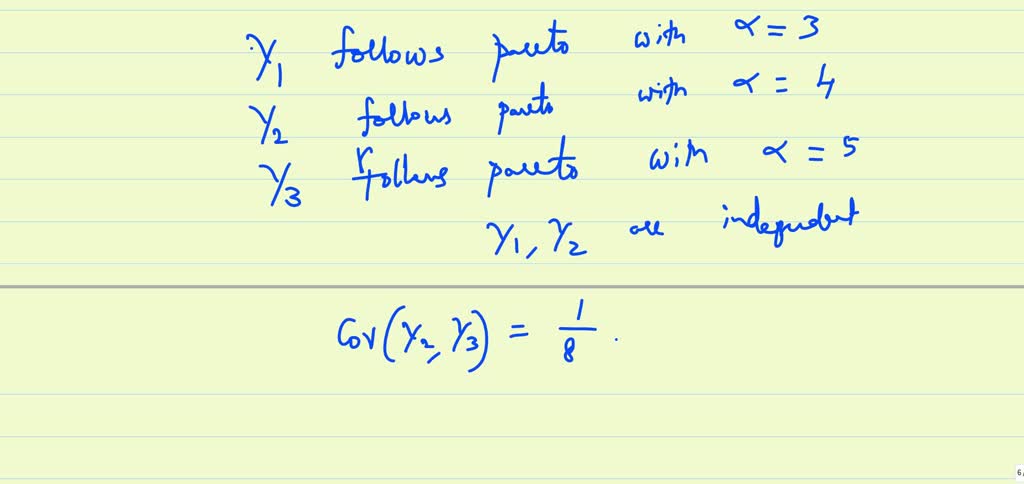 Y₁ follows pareto with α = 3
Y₂ follows pareto with α = 4
Y₃ follows pareto with α = 5
Y₁, Y₂ are independent
Cov(Y₂, Y₃) = 1/8 .
6